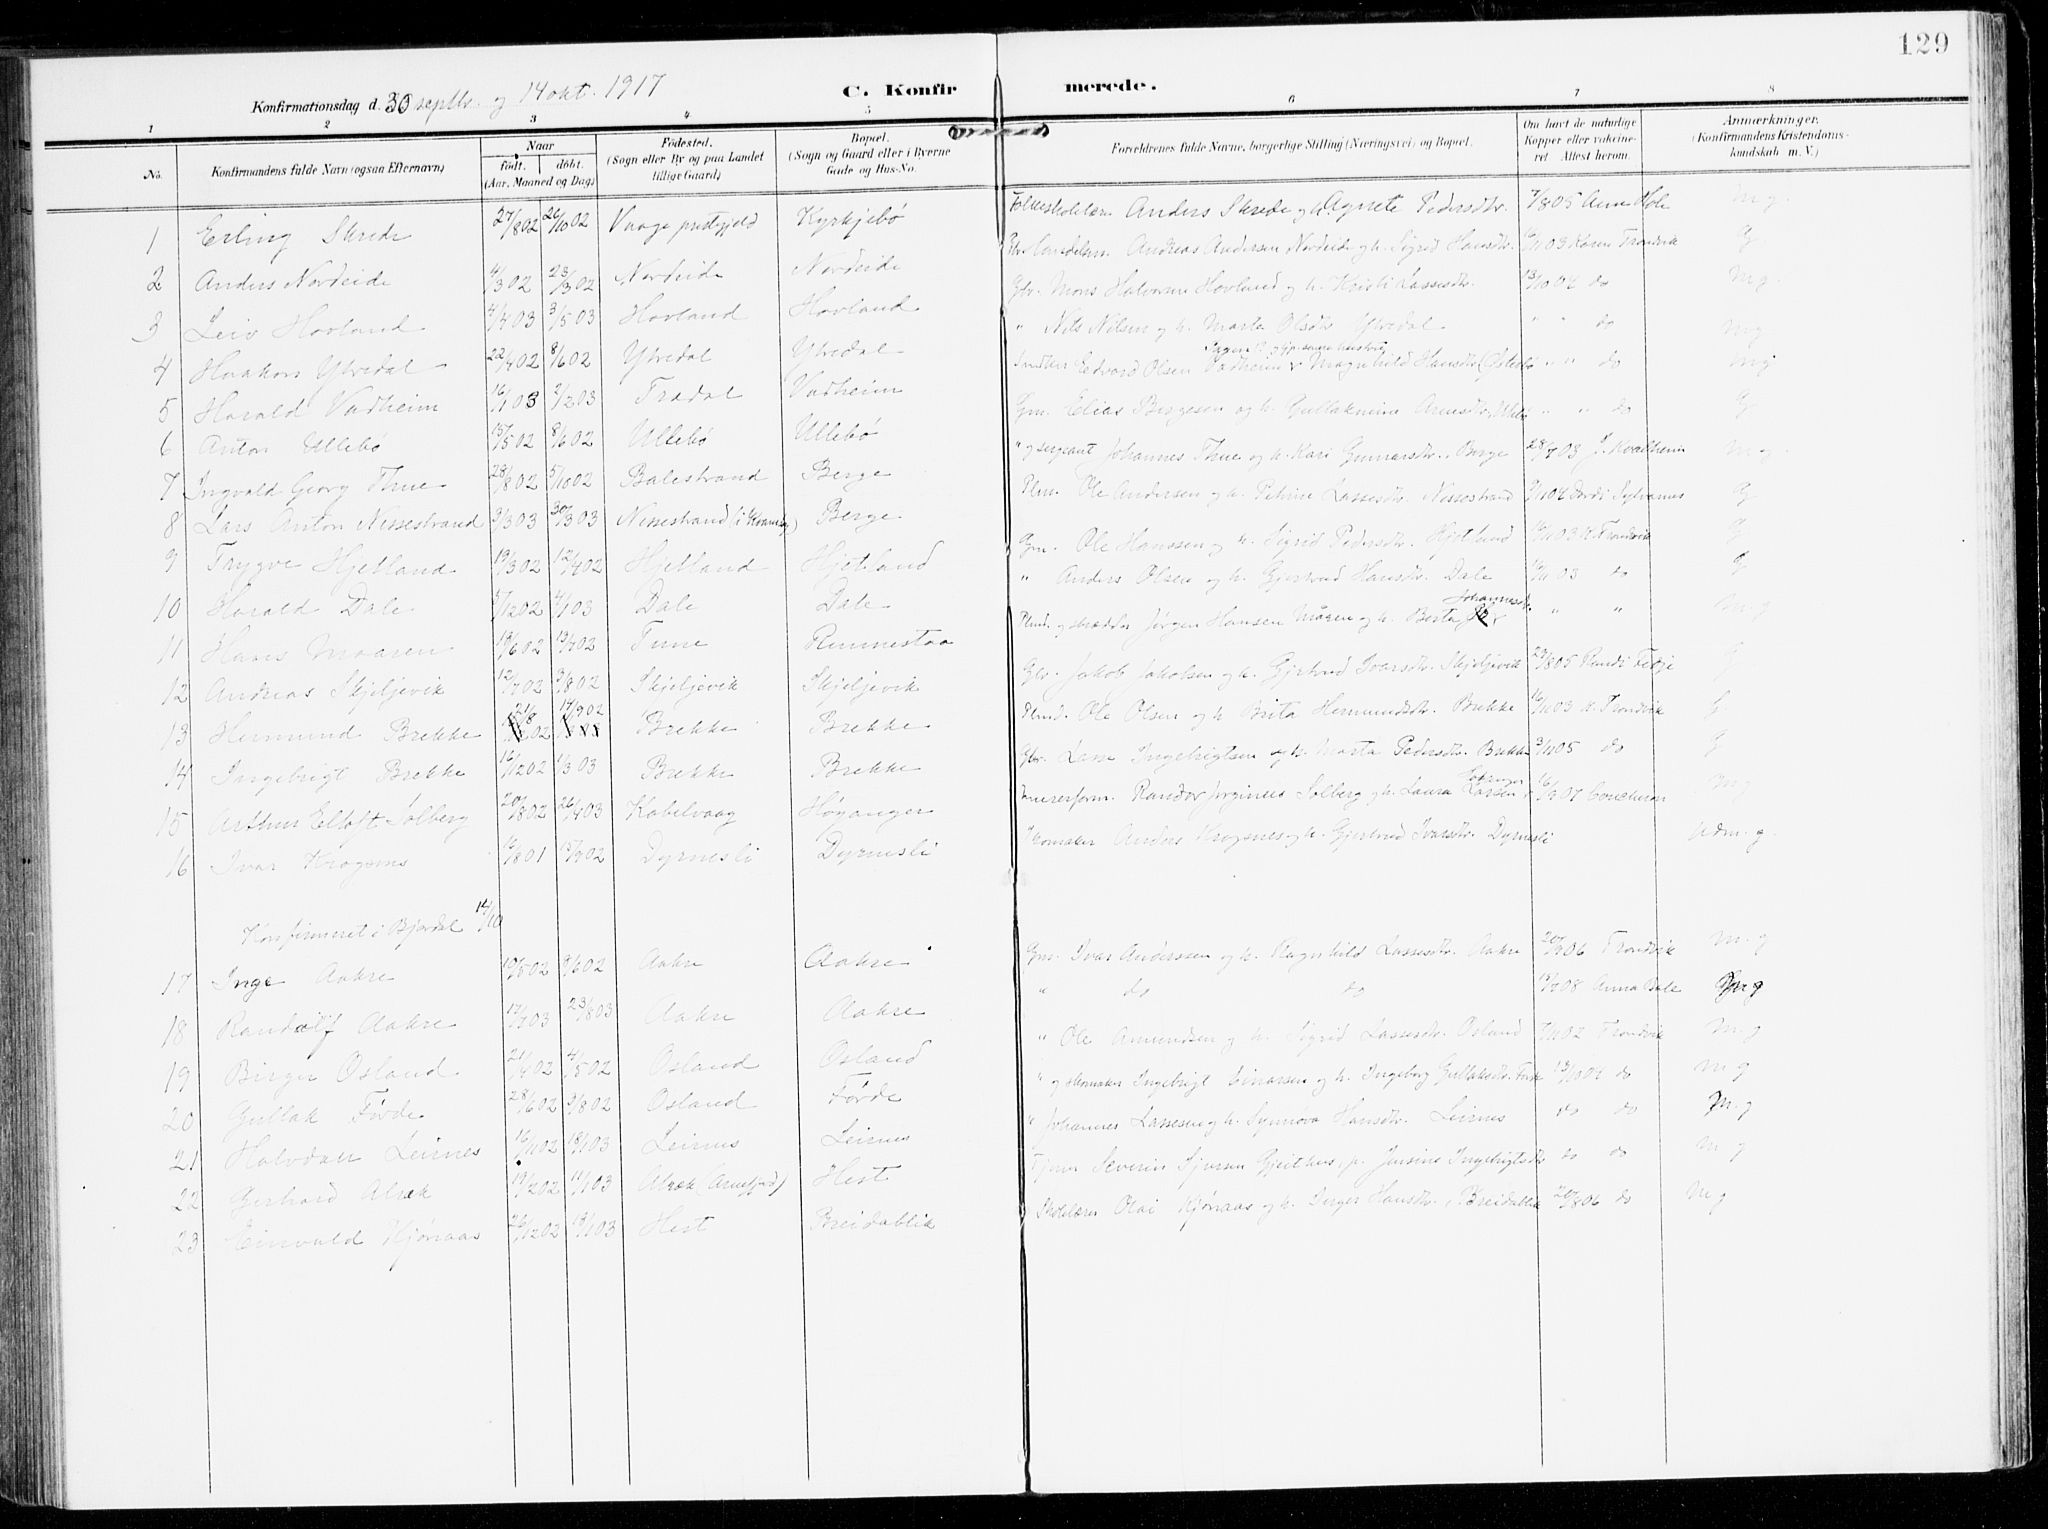 129
Konfirmationsdag d. 30 septbr. og 14 okt. 1917
C. Konfirmerede.
1 2 3 4 5 6 7 8
No. Konfirmandens fulde Navn (ogsaa Efternavn) Naar født. døbt. (Aar, Maaned og Dag) Fødested. (Sogn eller By og paa Landet tillige Gaard) Bopæl. (Sogn og Gaard eller i Byerne Gade og Hus-No. Forældrenes fulde Navne, borgerlige Stilling (Næringsvei) og Bopæl. Om havt de naturlige Kopper eller vaccineret. Attest herom. Anmærkninger. (Konfirmandens Kristendomskundskab m. V.)
1 Erling Skrede 27/8 02 26/10 02 Vaage prestgjeld Kyrkjebø Anders Skrede og h. Agnete Pedersdtr. 7/8 05 Anne Hole M g.
2 Anders Nordeide 4/3 02 23/3 02 Nordeide Nordeide Andreas Andersen Nordeide og h. Sigrid Hansdtr. 16/11 03 Karen Trondvik G
3 Leiv Hovland 4/4 03 3/5 03 Hovland Hovland Gbr. Mons Halvorsen Hovland og h. Kristi Lassesdtr. 13/10 04 do M g.
4 Haakon Ytredal 22/4 02 8/6 02 Ytredal Ytredal " Nils Nilsen og h. Marta Olsdtr. Ytredal " " do M g
5 Harald Vadheim 16/1 03 2/2 03 Tredal Vadheim Edvard Olsen Vadheim & Magnhild Hansdtr. " " do M g
6 Anton Ullebø 15/5 02 8/6 02 Ullebø Ullebø Gm. Elias Bergesen og h. Gullaknine Arnesdtr. " " do G
7 Ingvald Georg Thue 28/8 02 5/10 02 Balestrand Berge " og sergeant Johannes Thue og h. Kari Gunnarsdtr. Berge 28/7 03 J. Kvalheim M g.
8 Lars Anton Nessestrand 9/3 03 30/3 03 Nessestrand Berge Plm. Ole Andersen og h. Petrine Lassesdtr. Nessestrand Sylvarnes G
9 Trygve Hjetland 19/3 02 12/4 02 Hjetland Hjetland Gm. Ole Hanssen og h. Sigrid Pedersdtr. Hjetland 16/11 03 K Trondvik G
10 Harald Dale 5/12 02 4/1 03 Dale Dale " Anders Olsen og h. Gjertrud Hansdtr. Dale 16/11 03 do G
11 Hans Maaren 19/6 02 13/7 02 Tune Rennestaa Plmd. og skrædder Jørgen Hansen Måren og h. Berta Johannesdtr. " " M. g
12 Andreas Skjeljevik 12/7 02 3/8 02 Skjeljevik Skjeljevik Gbr. Jakob Jakobsen og h. Gjertrud Ivarsdtr. Skjeljevik 29/8 05 Randi Fetje G
13 Hermund Brekke 21/8 02 14/9 02 Brekke Brekke Plmd. Ole Olsen og h. Brita Hermundsdtr. Brekke 16/11 03 K. Trondvik G.
14 Ingebrigt Brekke 16/12 02 1/3 03 Brekke Brekke Gbr. Lasse Ingebrigtsen og h. Marta Pedersdtr. Brekke 3/11 05 do G
15 Arthur Eltoft Solberg 20/8 02 26/4 03 Kabelvaag Høyanger Randor Jørginius Solberg og h. Laura Larsen 16/9 07 M g
16 Ivar Krogsnes 16/8 01 Dyrnesli Dyrnesli Skomaker Anders Krogsnes og h. Gjertrud Ivarsdtr. Dyrnesli Udm. g.
Konfirmeret i Bjordal 14/10
17 Inge Aakre 10/5 02 8/6 02 Aakre Aakre Gm. Ivar Anderssen og h. Ragnhild Lassesdtr. Aakre 20/9 06 Trondvik M. g
18 Randolf Aakre 17/7 03 23/8 03 Aakre Aakre " do do Anna Dale M g
19 Birger Osland 21/4 02 4/5 02 Osland Osland " Ole Amundsen og h. Sigrid Lassesdtr. Osland 7/11 02 Trondvik M. g
20 Gullak Førde 28/6 02 3/8 02 Osland Førde " og skomaker Ingebrigt Einarsen og h. Ingeborg Gullaksdtr. Førde 13/10 04 do M g
21 Halvdan Leirnes 16/11 02 18/1 03 Leirnes Leirnes " Johannes Lassesen og h. Synnøva Hansdtr. Leirnes do do M. g
22 Gerhard Alræk 19/12 02 11/1 03 Alræk (Arnefjord) Hest Severin Sjursen Jensine Ingebrigtsdtr do do M g
23 Einvald Kjønaas 26/12 02 18/1 03 Hest Breidablik Skolelærer Olai Kjønaas og h. Inger Hansdtr. Breidablik 20/8 06 do M g